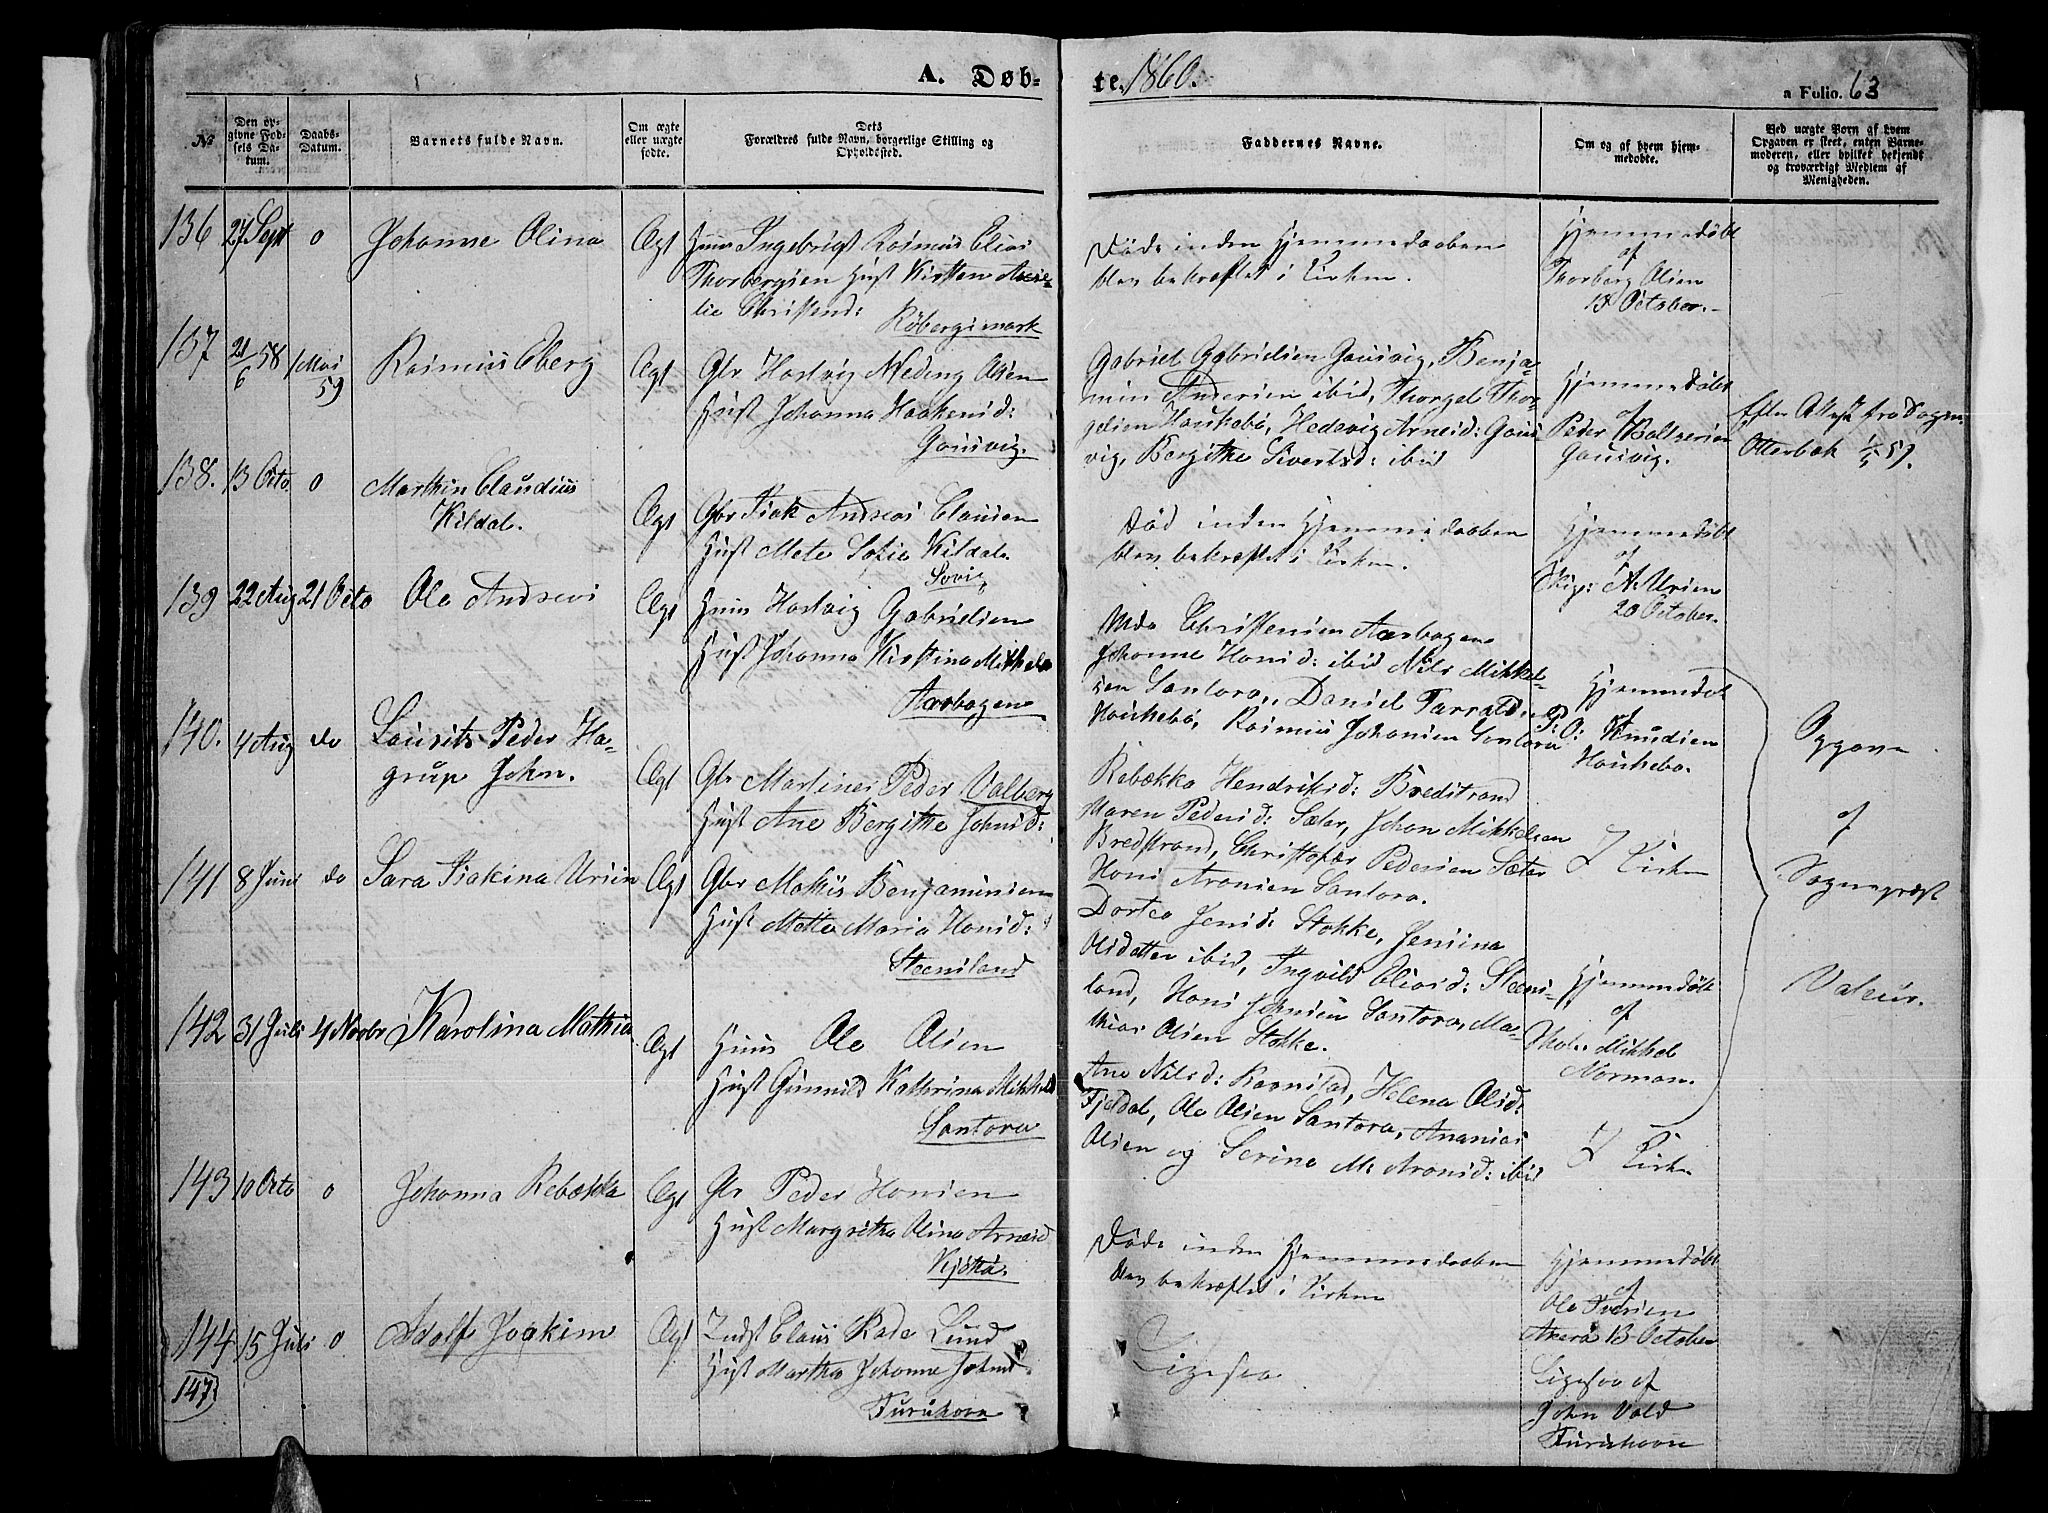 A. Døb-
te. 1860.
a Folio. 63
№
Den op-
givne Fød-
sels Da-
tum.
Daabs-
Datum.
Barnets fulde Navn.
Om ægte
eller uægte
fødte.
Dets
Forældres fulde Navn, borgerlige Stilling og
Opholdssted.
Faddernes Navne.
Om og af hvem hjem-
medøbte.
Ved uægte Børn af hvem
Opgaven er skeet, enten Barne-
moderen, eller hvilket bekjendt
og troværdigt Medlem af
Menigheden.
136 27 Sept o Johanne Olina Ægt Huus Ingebrigt Rasmus Elias
Thorbergsen Hust Kirsten
Christensd:
Røbergsmark
Døde inden Hjemmedaaben
blev bekræftet i Kirken.
Hjemmedøbt
af
Thorberg Olsen
18 October.
137 21/6 58 1 Mai
59 Rasmus Eberg Ægt Gbr Hartvig Meding Olsen
Hust Johanna Haakensd:
Gausvig.
Gabriel Gabrielsen Gausvig, Benja-
min Andersen ibid, Thorgel Thor-
gelsen Haukebø, Hedevig Arnesd: Gaus
vig, Bergithe Sivertsd: ibid
Hjemmedøbt
af
Peder Baltzersen
Gausvig.
Efter Attest fra Sogne.
Otterbek 1/5 59.
138. 13 Octo o Marthin Claudius
Kildal.
Ægt Gbr Isak Andreas Clausen
Hust Mete Sofie Kildal.
Sørvig
Død inden Hjemmedaaben
blev bekræftet i Kirken.
Hjemmedøbt
af
Skip: A. Ursin
20 October.
139 22 Aug 21 Octo Ole Andreas Ægt Huus Hartvig Gabrielsen
Hust Johanna Kirstina Mikkels
Aarbogen
Christensen Aarbogen
Johanne Hansd: ibid Nils Mikkel-
sen Santora, Daniel Tarralds.
Haukebø, Rasmus Johansen Santora
Hjemmedøbt
af
P: O: Knudsen
Haukebø.
140. 4 Aug do Laurits Peder Ha-
grup John.
Ægt Gbr Martines Peder Valberg
Hust Ane Bergithe Johnsd:
Rebækka Hendriksd: Bredstrand
Maren Pedersd: Sæter, Johan Mikkelsen
Bredstrand, Christofer Pedersen Sæter
Hans Aronsen Santora.
I Kirken
141 8 Juni do Sara Isakina Ursin Ægt Gbr Mathis Benjaminsen
Hust Mette Maria Hansd:
Steensland
Dortea Jensd: Stokke, Jensina
Olsdatter ibid, Ingvild Eliasd: Steens-
land, Hans Johnsen Santora, Ma-
thias Olsen Stokke.
Hjemmedøbt
af
Mikkel
Norman.
142 31 Juli 4 Novbr Karolina Mathea Ægt Huus Ole Olsen
Hust Gunnild Kathrina Mikkels
Santora
Ane Nilsd: Ravnstad, Helena Olsd:
Fjeldal, Ole Olsen Santora, Ananias
Olsen og Serina M. Aronsd: ibid
I Kirken
Opgave
af
Sognepræst
Valeur.
143 10 Octo o Johanna Rebækka Ægt Gbr Peder Hansen
Hust Margretha Olina Arnesd
Kjøtta.
Døde inden Hjemmedaaben
blev bekræftet i Kirken
Hjemmedøbt
af
Ole Iversen
13 October
144 15 Juli o Adolf Joakim Ægt Indst Claus Rade Lund
Hust Martha Johanna Johnsd
Furuhavn
Ligesaa
Ligesaa af
John Vold
Furuhavn
147